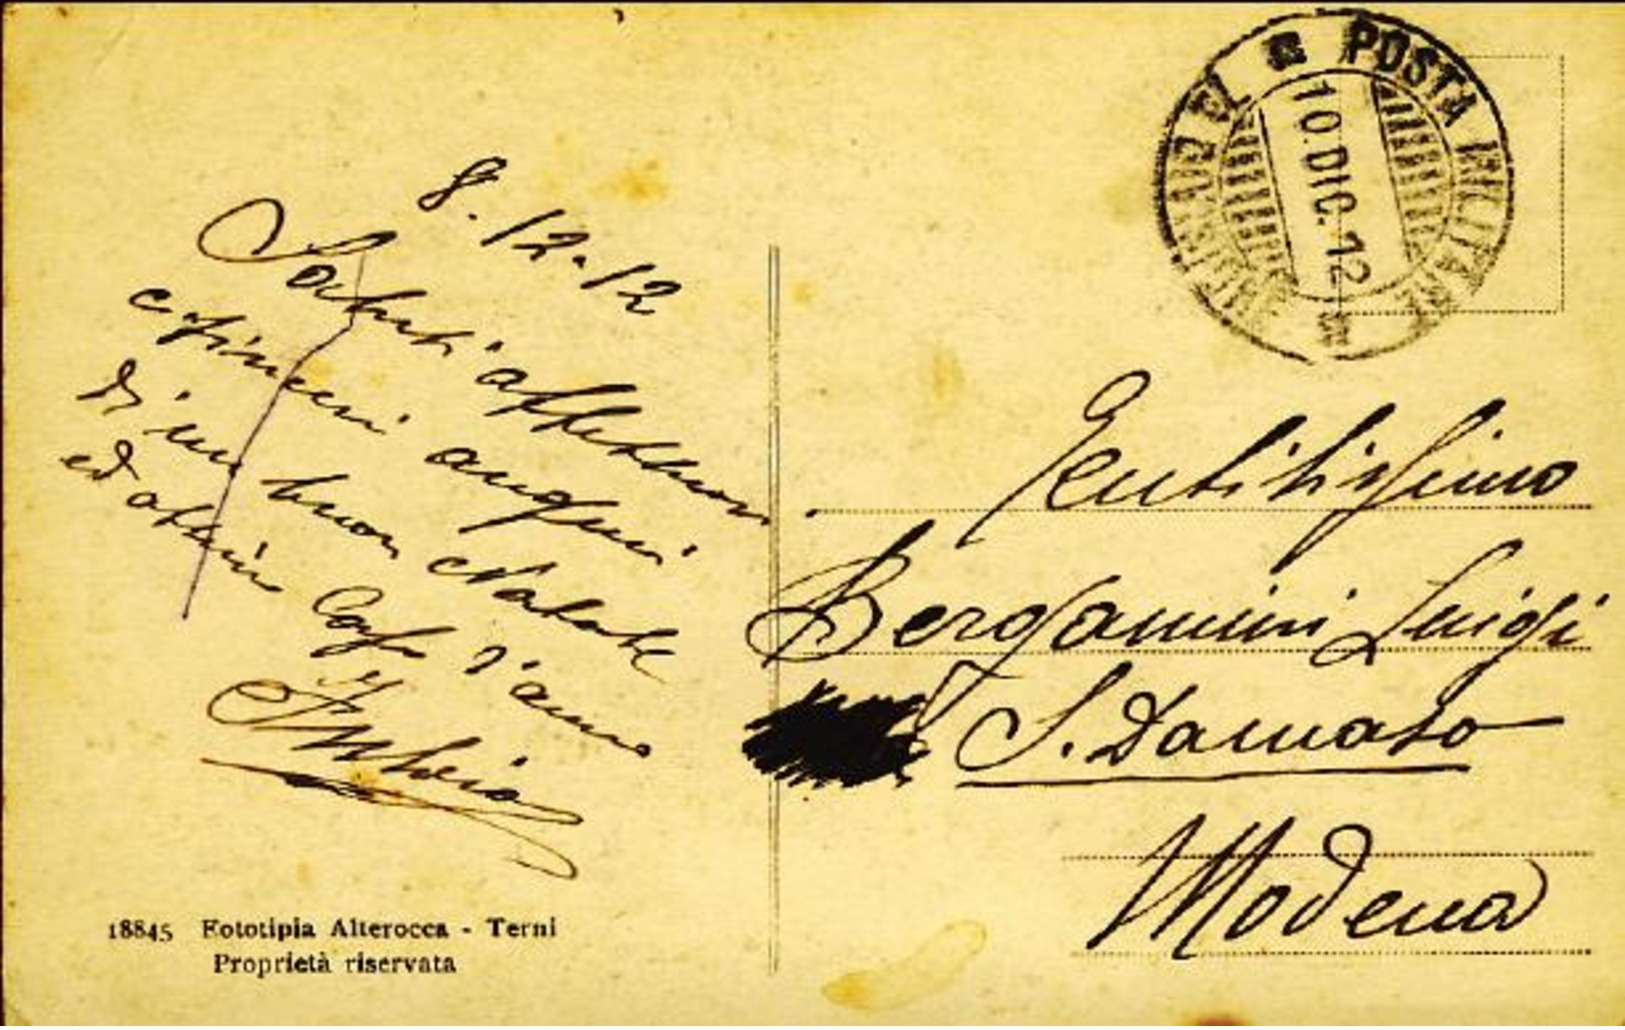 8.12.12
Saluti affettuosi
e sinceri auguri
di un buon Natale
ed ottimo Capo d'anno
18845 Fototipia Alterocca - Terni
Proprietà riservata
POSTA MILITARE
10.DIC.12
Gentilissimo
Bergamini Luigi
S. Damaso
Modena